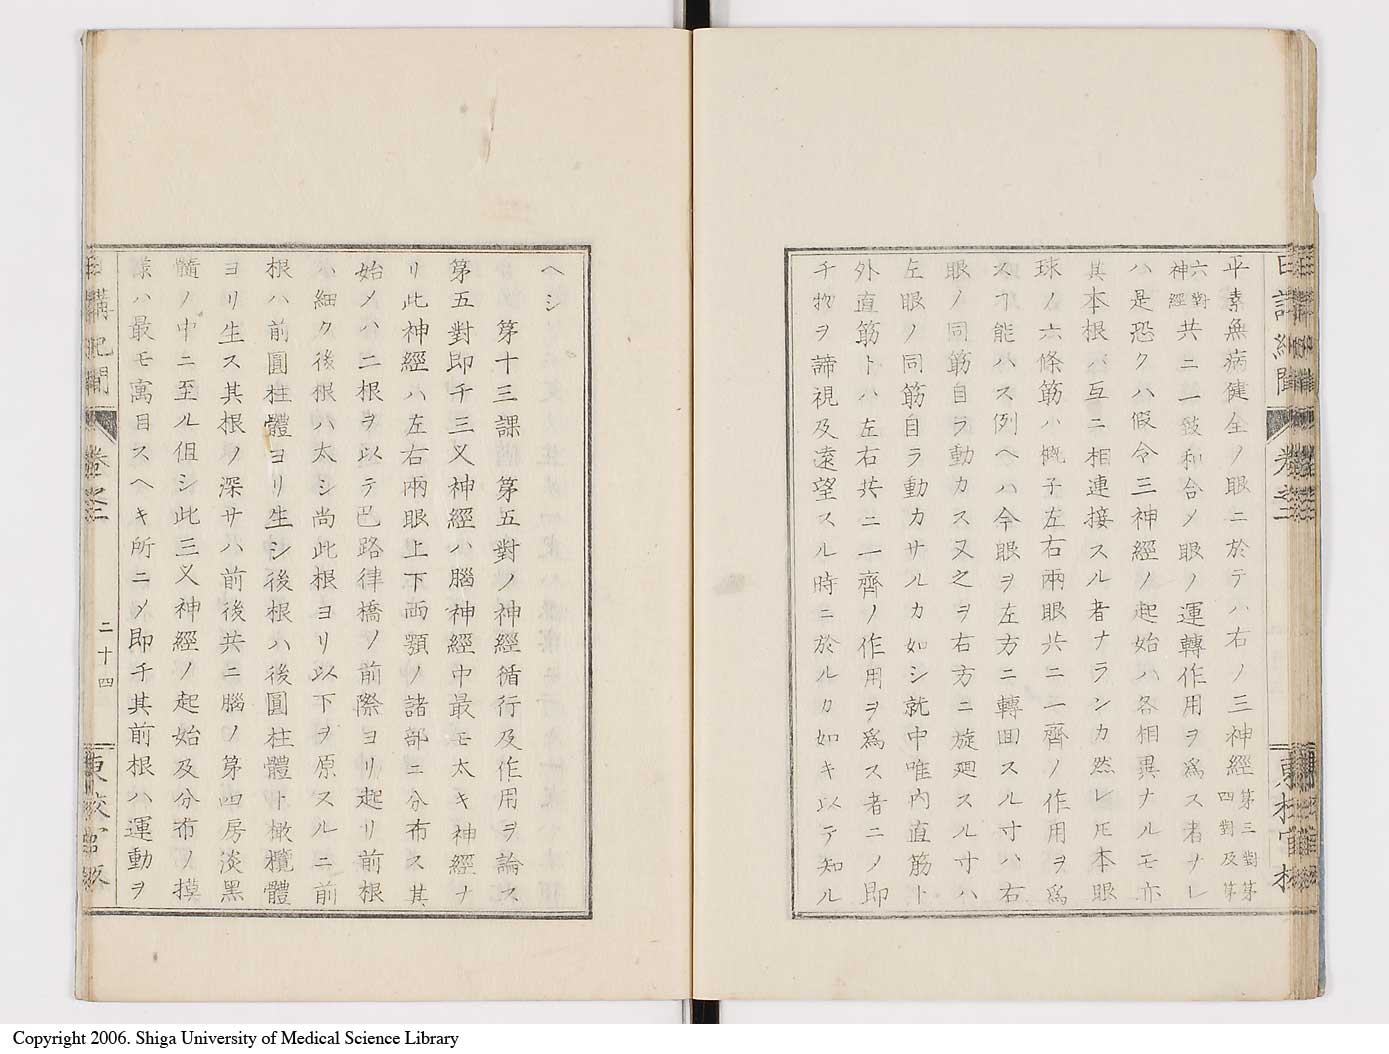 平素無病健全ノ眼ニ於テハ右ノ三神經第三對第四對及第
六對神經共ニ一致和合〆眼ノ運轉作用ヲ爲ス者ナレ
ハ是恐クハ假令三神經ノ起始ハ各相異ナルモ亦
其本根ハ互ニ相連接スル者ナランカ然レ𪜈本眼
球ノ六條筋ハ慨子左右兩眼共ニ一齊ノ作用ヲ爲
ス不能ハス例ヘハ今眼ヲ左方ニ轉囬スル寸ハ右
眼ノ同筋自ラ動カス又之ヲ右方ニ旋廻スル寸ハ
左眼ノ同筋自ラ動カサルカ如シ就中唯内直筋ト
外直筋トハ左右共ニ一齊ノ作用ヲ爲ス者ニ〆即
チ物ヲ諦視及遠望スル時ニ於ルカ如キ以テ知ル
ヘシ
第十三課 第五對ノ神經循行及作用ヲ論ス
第五對即チ三叉神經ハ腦神經中最モ太キ神經ナ
リ此神經ハ左右兩眼上下両顎ノ諸部ニ分布ス其
始メハ二根ヲ以テ巴路律橋ノ前際ヨリ起リ前根
ハ細ク後根ハ太シ尚此根ヨリ以下ヲ原スルニ前
根ハ前圓柱體ヨリ生シ後根ハ後圓柱體ト橄欖體
ヨリ生ス其根ノ深サハ前後共ニ腦ノ第四房淡黑
髓ノ中ニ至ル但シ此三叉神經ノ起始及分布ノ摸
様ハ最モ寓目スヘキ所ニ〆即チ其前根ハ運動ヲ
日講記聞
卷之二
二十四
Copyright 2006. Shiga University of Medical Science Library